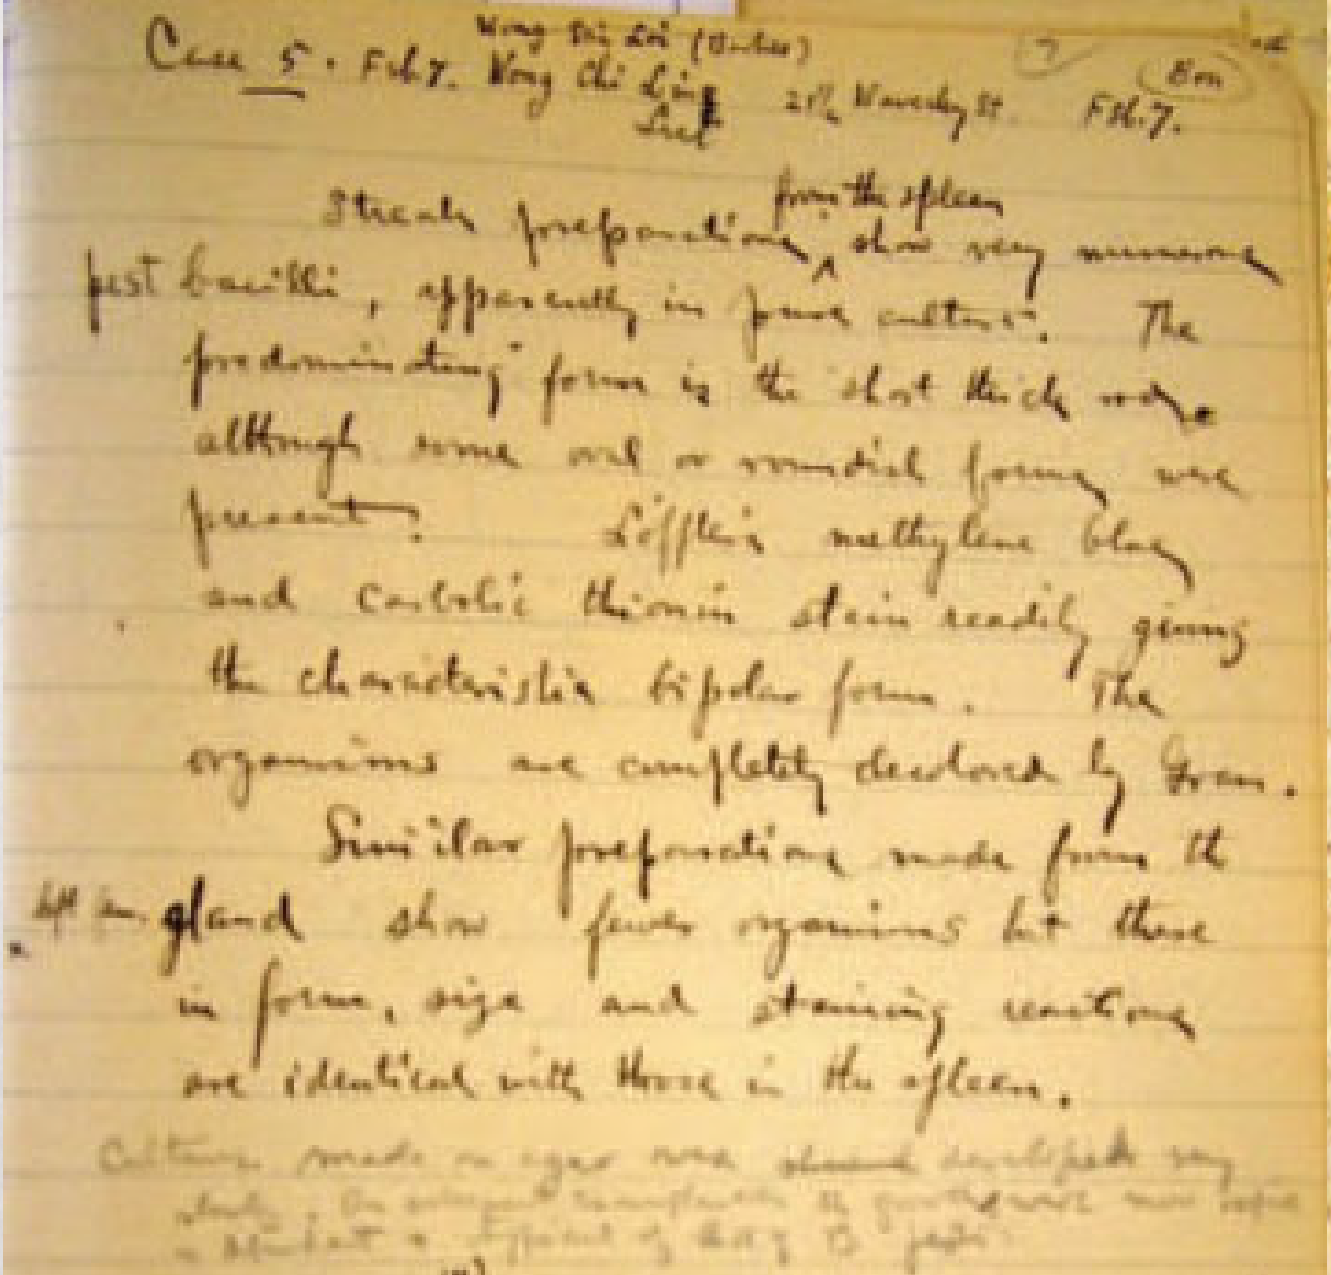 Wong Chi Loi (Barber)
Case 5. Feb. 7. Wong Chi Ling 21½ Waverly St. Feb. 7. Box
from the spleen
Streak preparations ^ show very numerous
pest bacilli, apparently in pure culture. The
predominating form is the short thick rod,
although some oval or roundish forms were
present. Löffler's methylene blue
and carbolic thionin stain readily giving
the characteristic bipolar form. The
organisms are completely decolored by Gram.
Similar preparations made from the
gland show fewer organisms but these
in form, size and staining reactions
are identical with those in the spleen.
Cultures made on agar developed very
slowly. On subsequent the growth more
abundant typical of B pestis